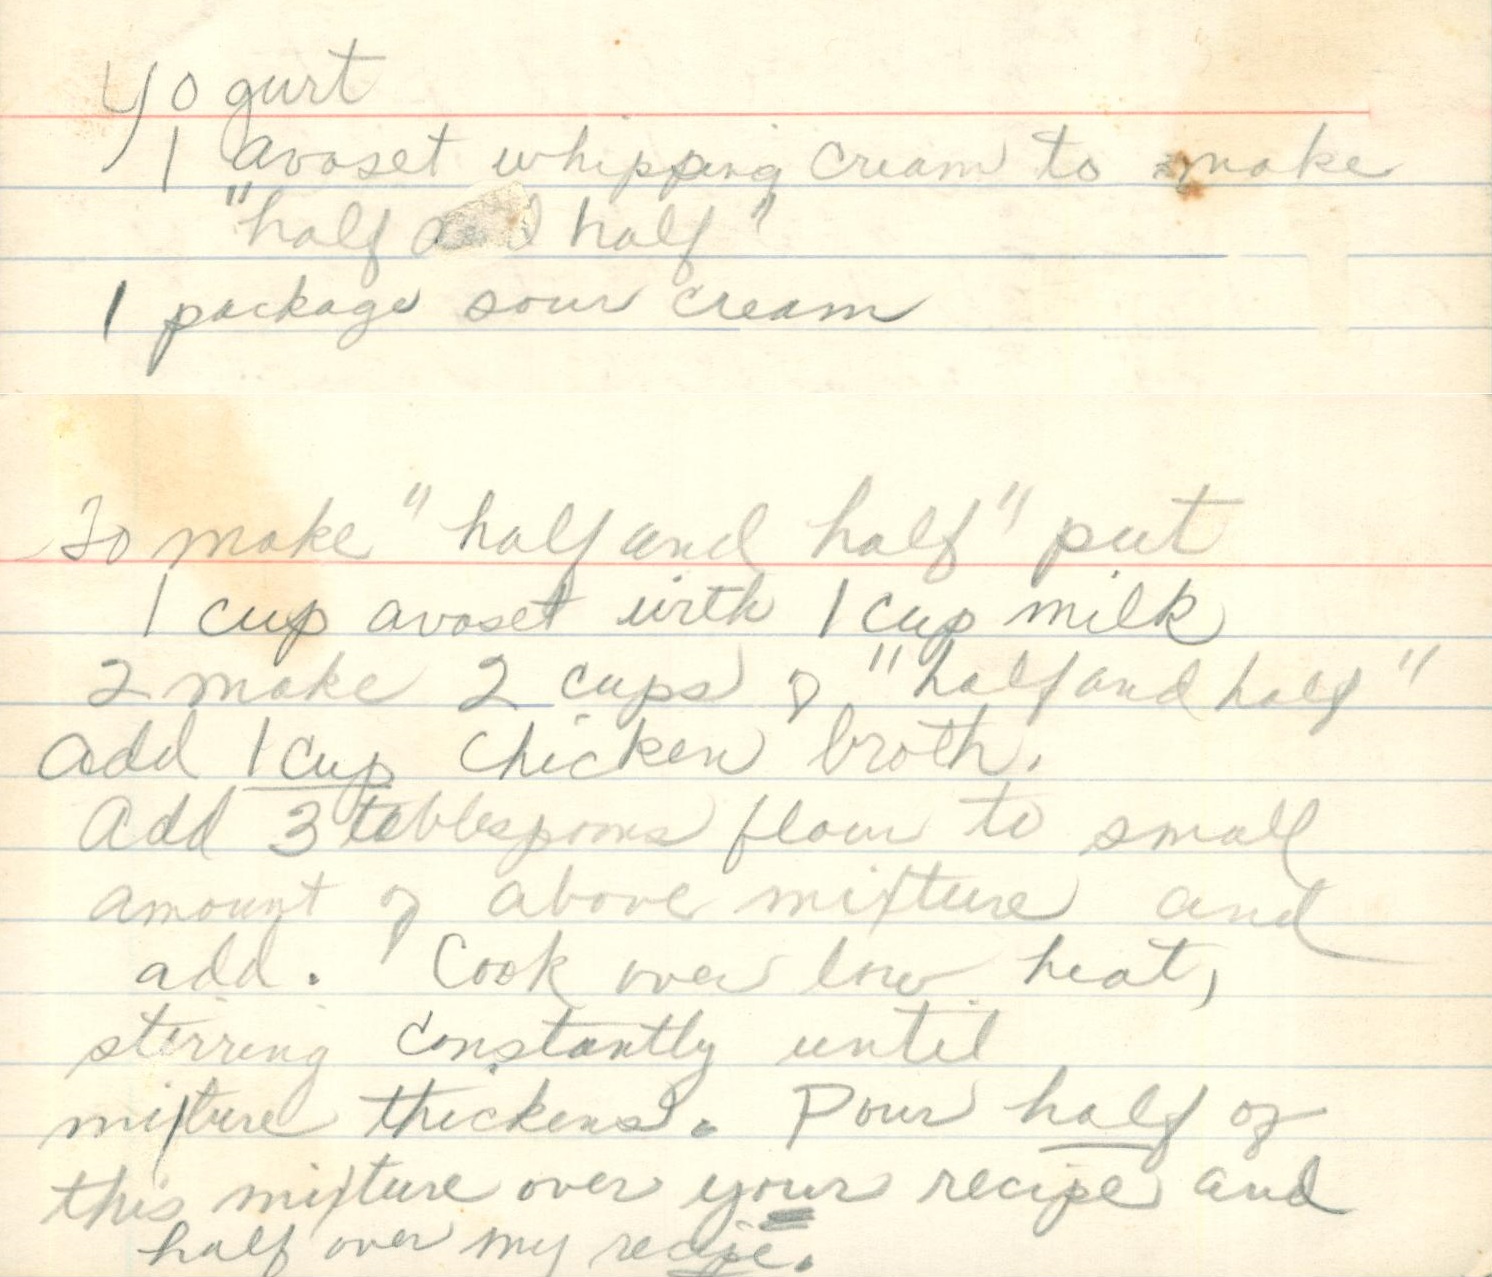 Yogurt
1 avoset whipping cream to make
"half and half"
1 package sour cream
To make "half and half" put
1 cup avoset with 1 cup milk
2 make 2 cups of "half and half"
add 1 cup chicken broth.
Add 3 tablespoons flour to small
amount of above mixture and
add. Cook over low heat,
stirring constantly until
mixture thickens. Pour half of
this mixture over your recipe and
half over my recipe.